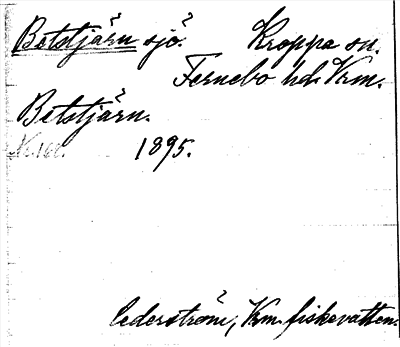 Betstjärn sjö. Kroppa sn.
Fernebo hd. Vrm.
Betstjärn.
1895.
Cederström, Vrm. fiskevatten.